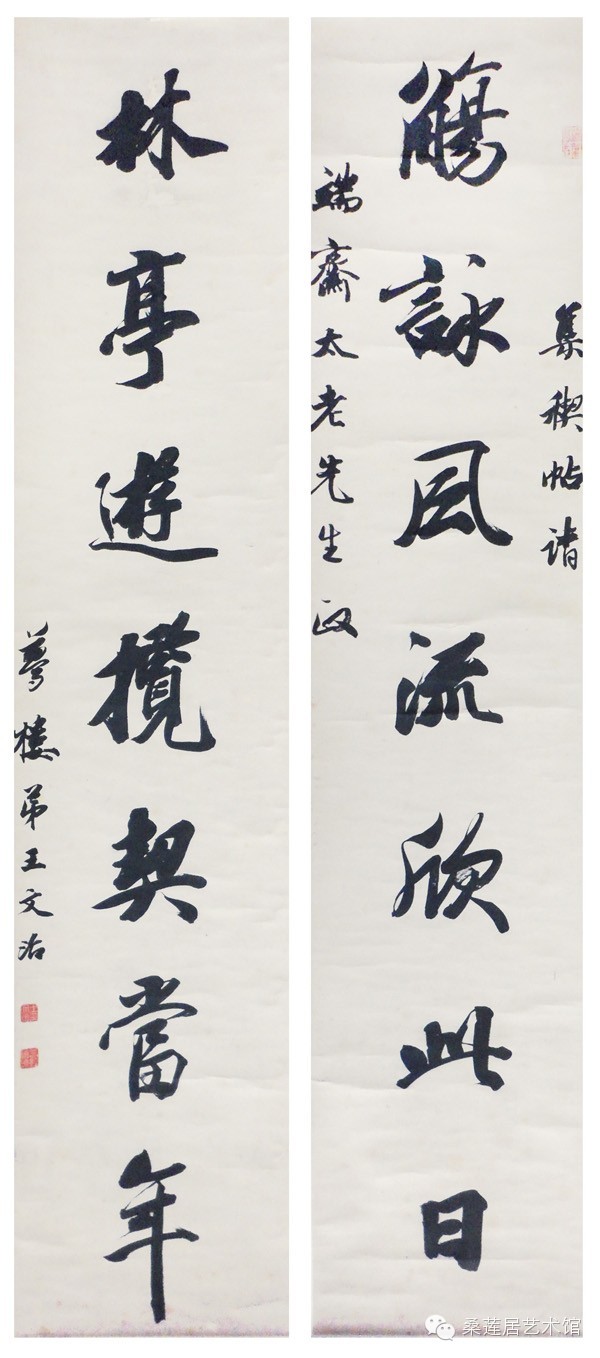 觴詠風流欣此日
集稧帖請
瑞齋太老先生政
林亭遊攬契當年
夢樓弟王文治
桑莲居艺术馆